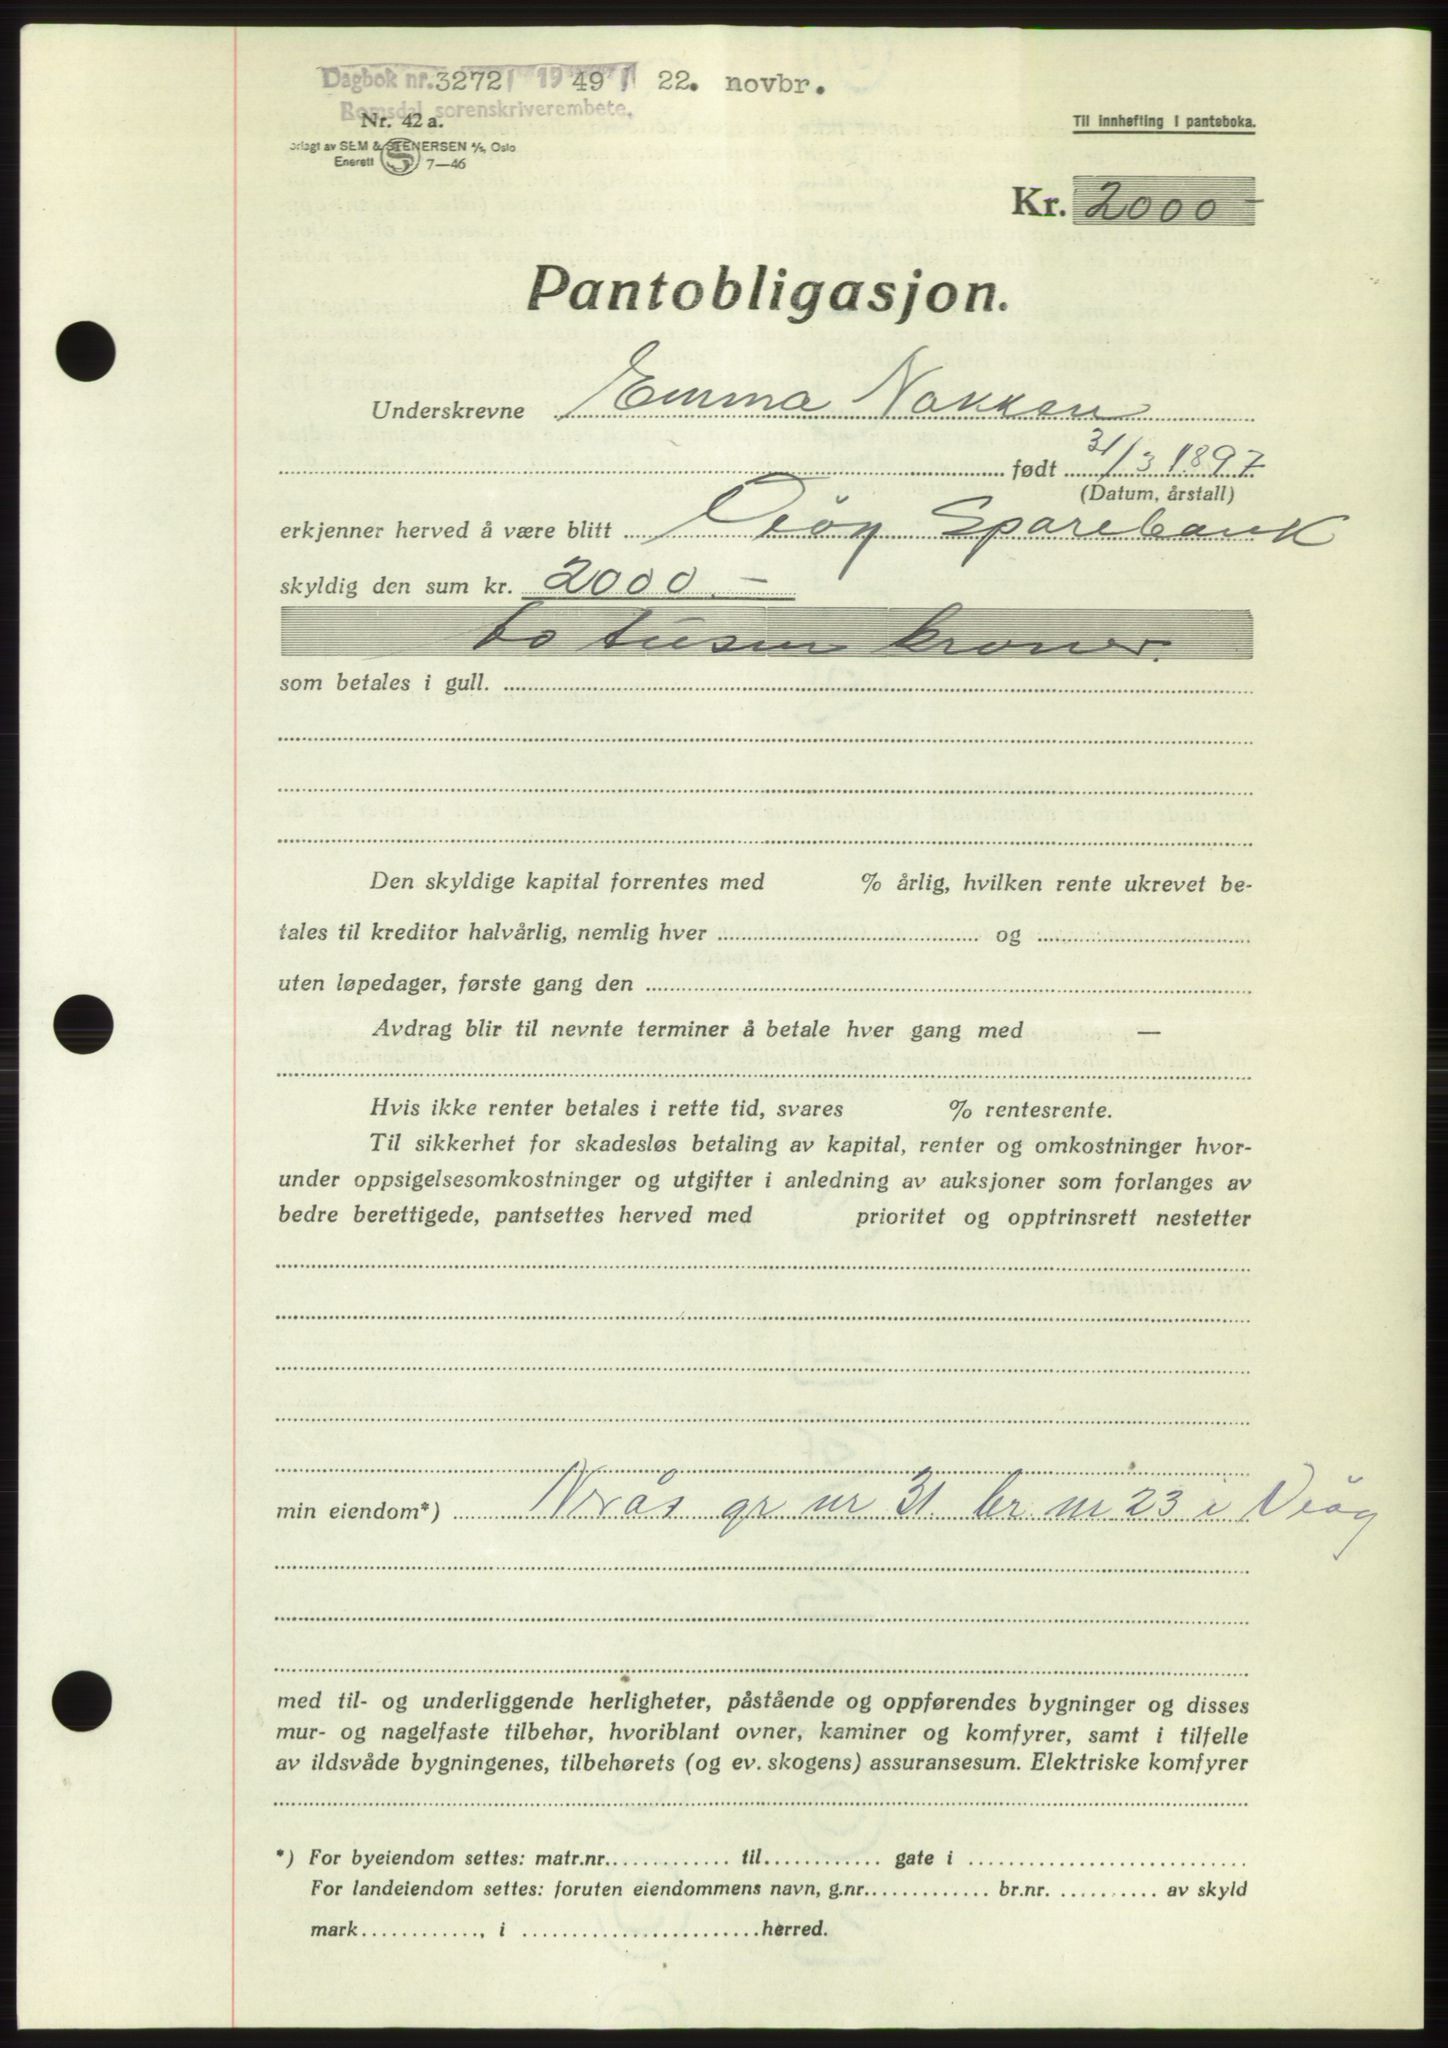 Dagbok nr. 3272 / 1949 / 22. novbr.
Romsdal sorenskriverembete.
Nr. 42 a.
Til innhefting i panteboka.
orlagt av SEM & STENERSEN A/S, Oslo
Enerett 7—46
Kr. 2000 —
Pantobligasjon.
Underskrevne Emma Nakken
født 31/3 1897
(Datum, årstall)
erkjenner herved å være blitt Veøy Sparebank
skyldig den sum kr. 2000.—
to tusen kroner.
som betales i gull.
Den skyldige kapital forrentes med % årlig, hvilken rente ukrevet be-
tales til kreditor halvårlig, nemlig hver og
uten løpedager, første gang den
Avdrag blir til nevnte terminer å betale hver gang med —
Hvis ikke renter betales i rette tid, svares % rentesrente.
Til sikkerhet for skadesløs betaling av kapital, renter og omkostninger hvor-
under oppsigelsesomkostninger og utgifter i anledning av auksjoner som forlanges av
bedre berettigede, pantsettes herved med prioritet og opptrinsrett nestetter
min eiendom*) gr nr 31 br nr 23 i Veøy
med til- og underliggende herligheter, påstående og oppførendes bygninger og disses
mur- og nagelfaste tilbehør, hvoriblant ovner, kaminer og komfyrer, samt i tilfelle
av ildsvåde bygningenes, tilbehørets (og ev. skogens) assuransesum. Elektriske komfyrer
*) For byeiendom settes: matr.nr. til gate i
For landeiendom settes: foruten eiendommens navn, g.nr. br.nr. av skyld
mark , i herred.